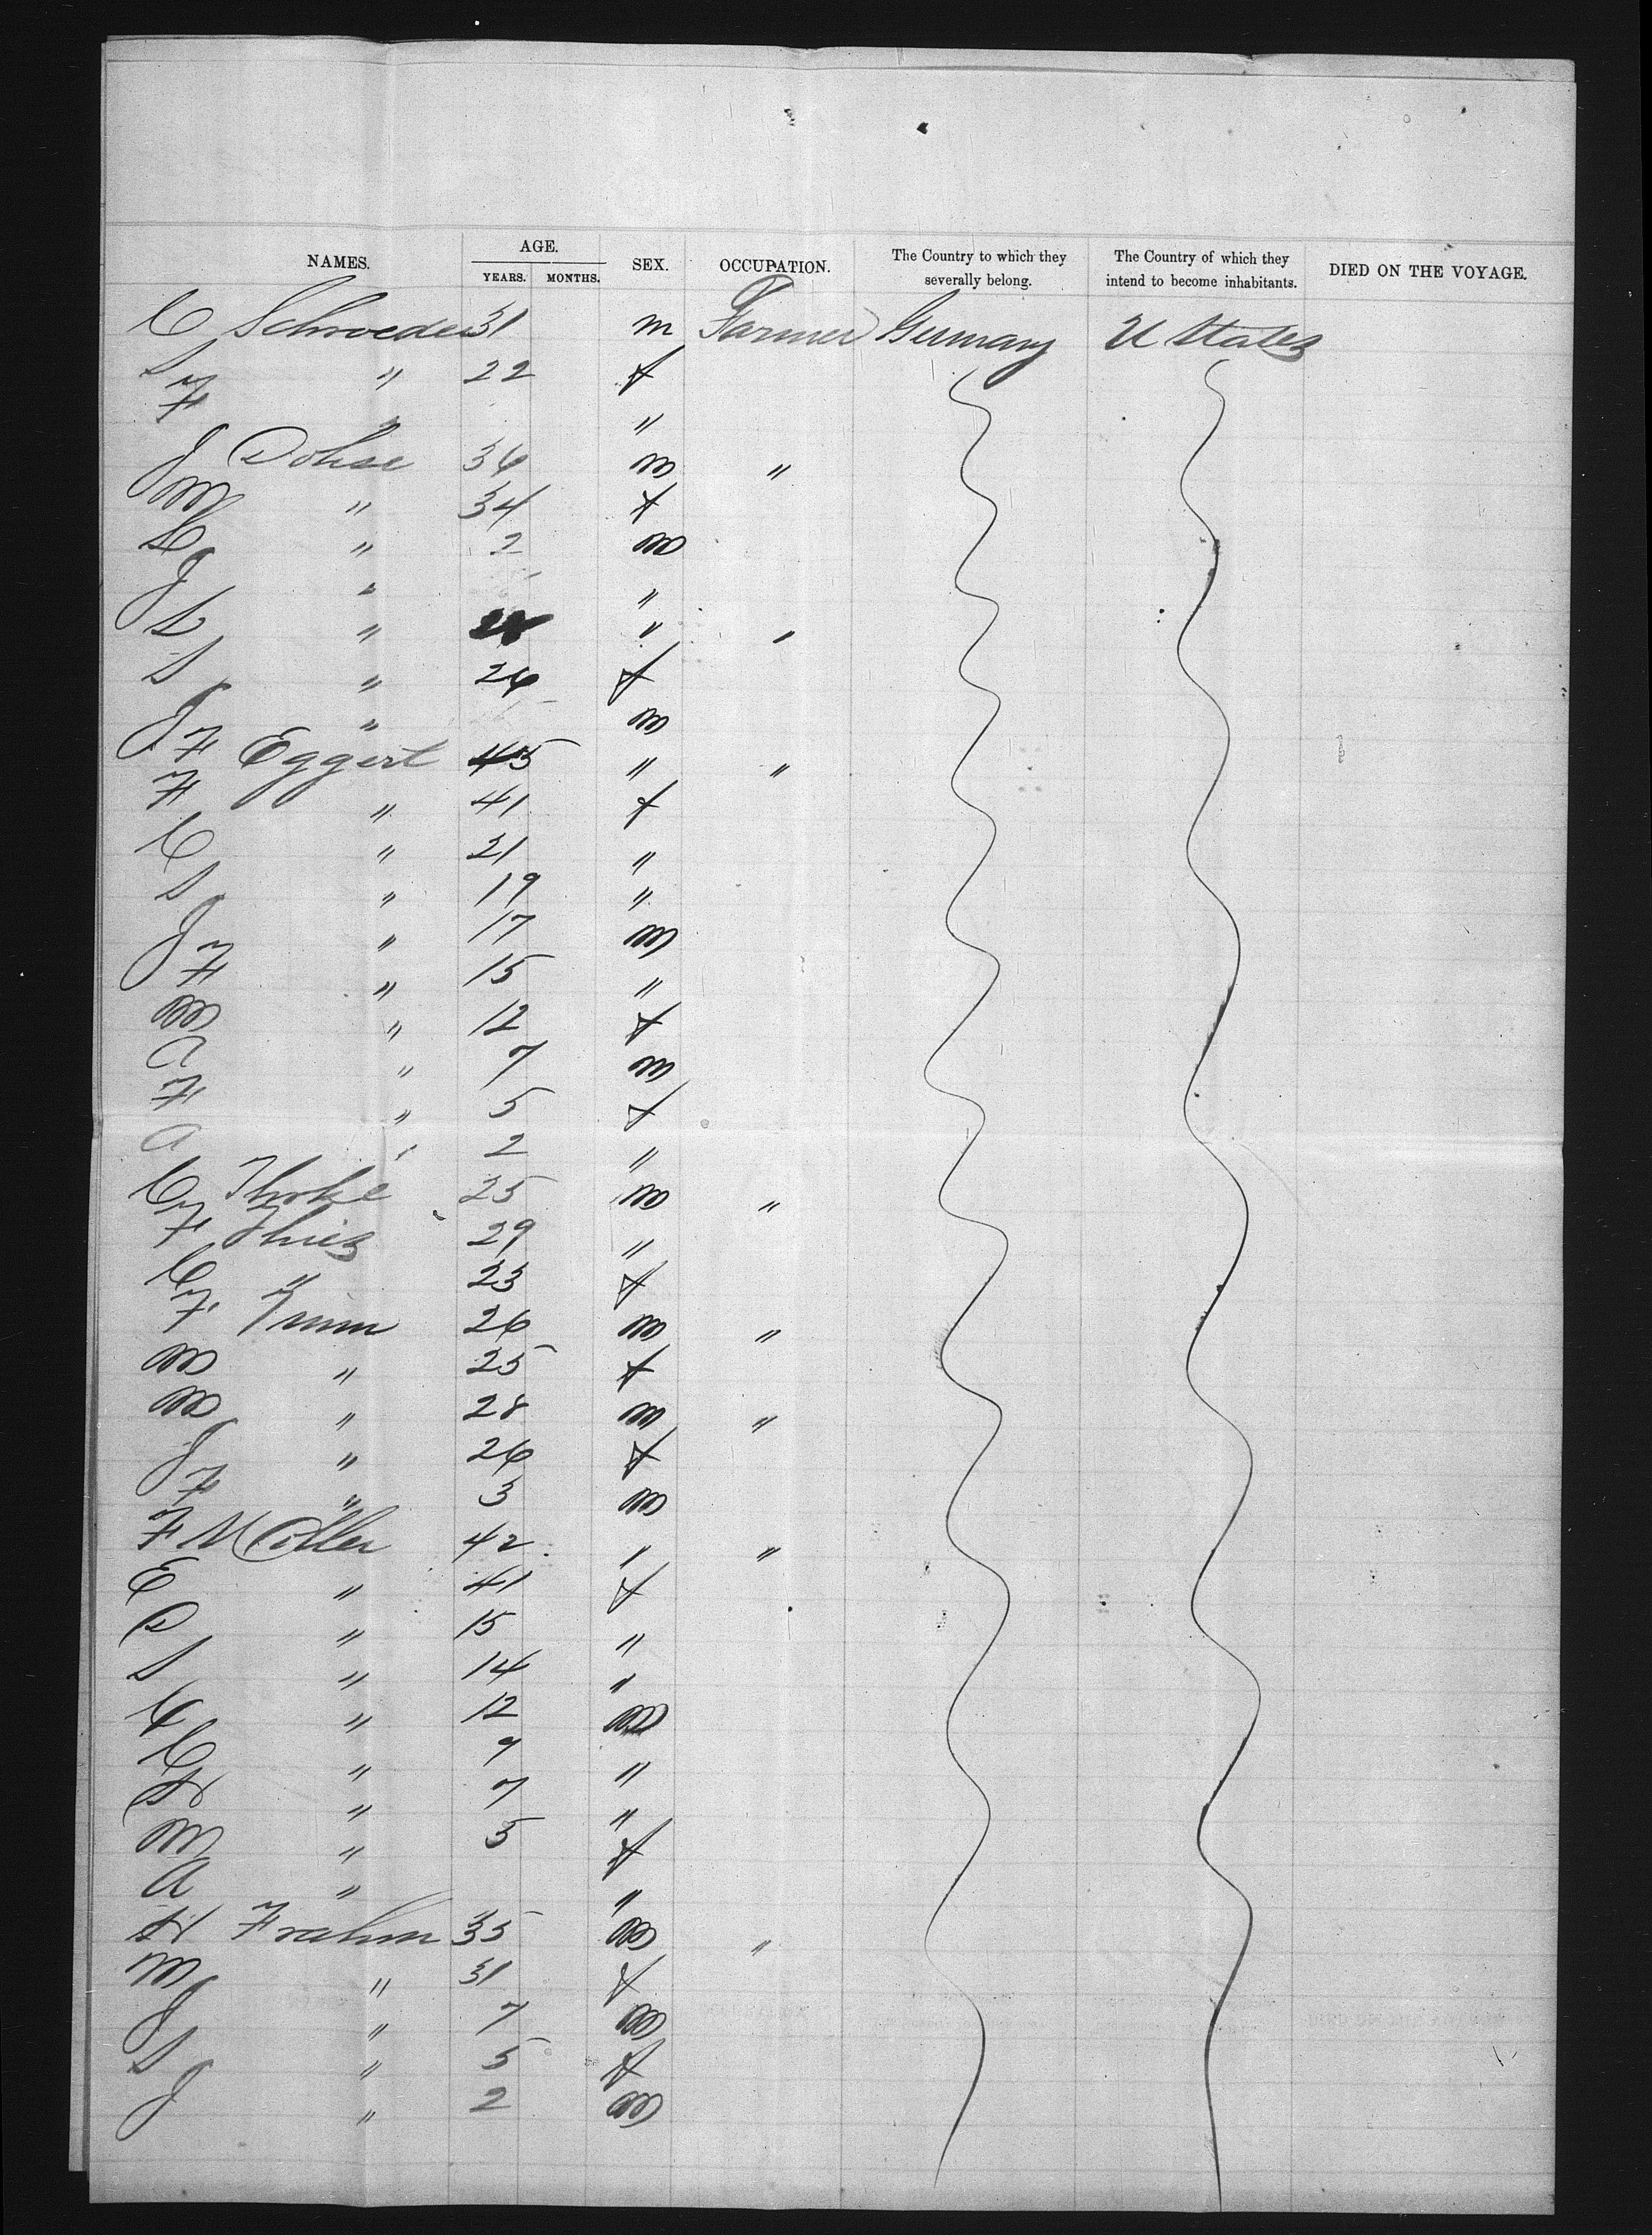 NAMES. AGE. YEARS. MONTHS. SEX. OCCUPATION. The Country to which they severally belong. The Country of which they intend to become inhabitants. DIED ON THE VOYAGE.
C Schroeder 31 m Farmer Germany U States
S " 22 f
F " "
J Dohse 36 m "
M " 34 f
C " 2 m
J " "
L " 28 " "
S " 26 f
J " m
F Eggert 45 " "
F " 41 f
C " 21 "
S " 19 "
J " 17 m
F " 15 "
M " 12 f
A " 7 m
F " 5 f
A " 2 "
C 25 m "
F Thies 29 "
C " 23 f
F 26 m "
M " 25 f
M " 28 m "
J " 26 f
F " 3 m
F 42 " "
E " 41 f
D " 15 "
S " 14 "
C " 12 m
C " 9 "
H " 7 "
M " 5 f
A " "
H Frahm 35 m "
M " 31 f
J " 7 m
S " 5 f
J " 2 m